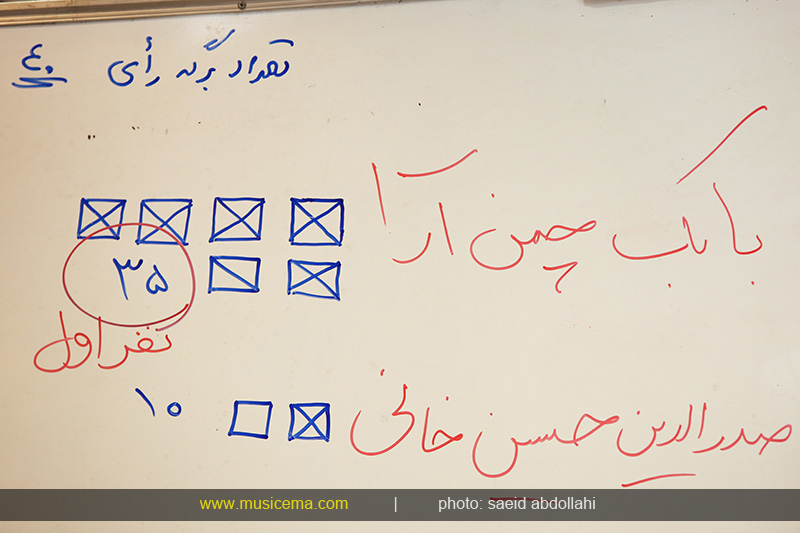 تعداد برگه رأی ۴۰
بابک چمن آرا
۳۵
نفر اول
صدرالدین حسین خانی
۱۰
www.musicema.com | photo: saeid abdollahi